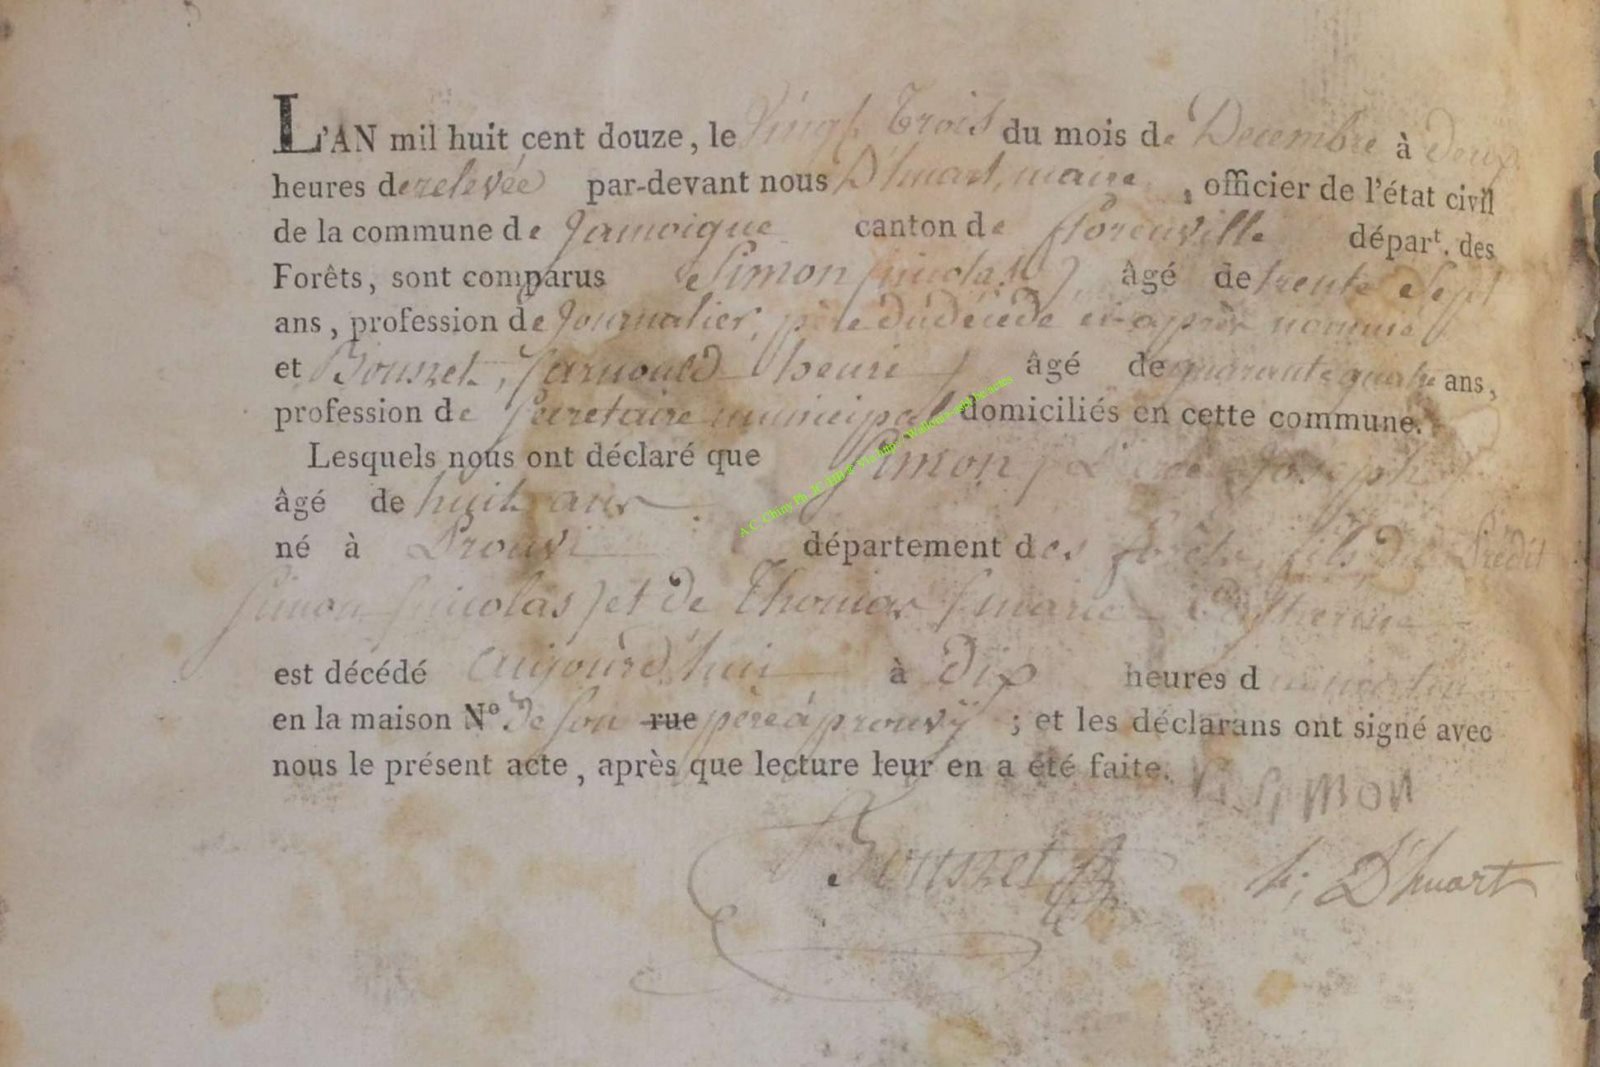 L'AN mil huit cent douze, le Vingt Trois du mois de Decembre à deux
heures de relevée par-devant nous D'huart, maire, officier de l'état civil
de la commune de Jamoigue canton de florenville départ. des
Forêts, sont comparus Simon (nicolas) âgé de trente Sept
ans, profession de Journalier, père du décédé ci-après nommé
et Bousret, (arnould henri) âgé de quarante quatre ans,
profession de Secretaire municipal domiciliés en cette commune.
Lesquels nous ont déclaré que Simon Joseph
âgé de huit ans
né à Prouvi département des forêts, fils du Prédit
Simon (nicolas) et de Thomas (marie Catherine
est décédé aujourd'hui à dix heures d
en la maison N.º de son rue père à prouvÿ ; et les déclarans ont signé avec
nous le présent acte, après que lecture leur en a été faite.
Simon
Bousret
h; D'huart